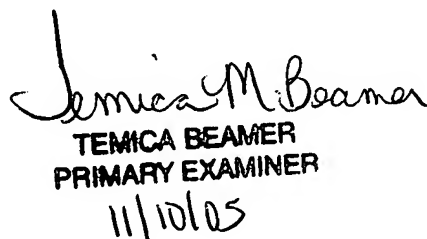 Temica M. Beamer
TEMICA BEAMER
PRIMARY EXAMINER
11/10/05